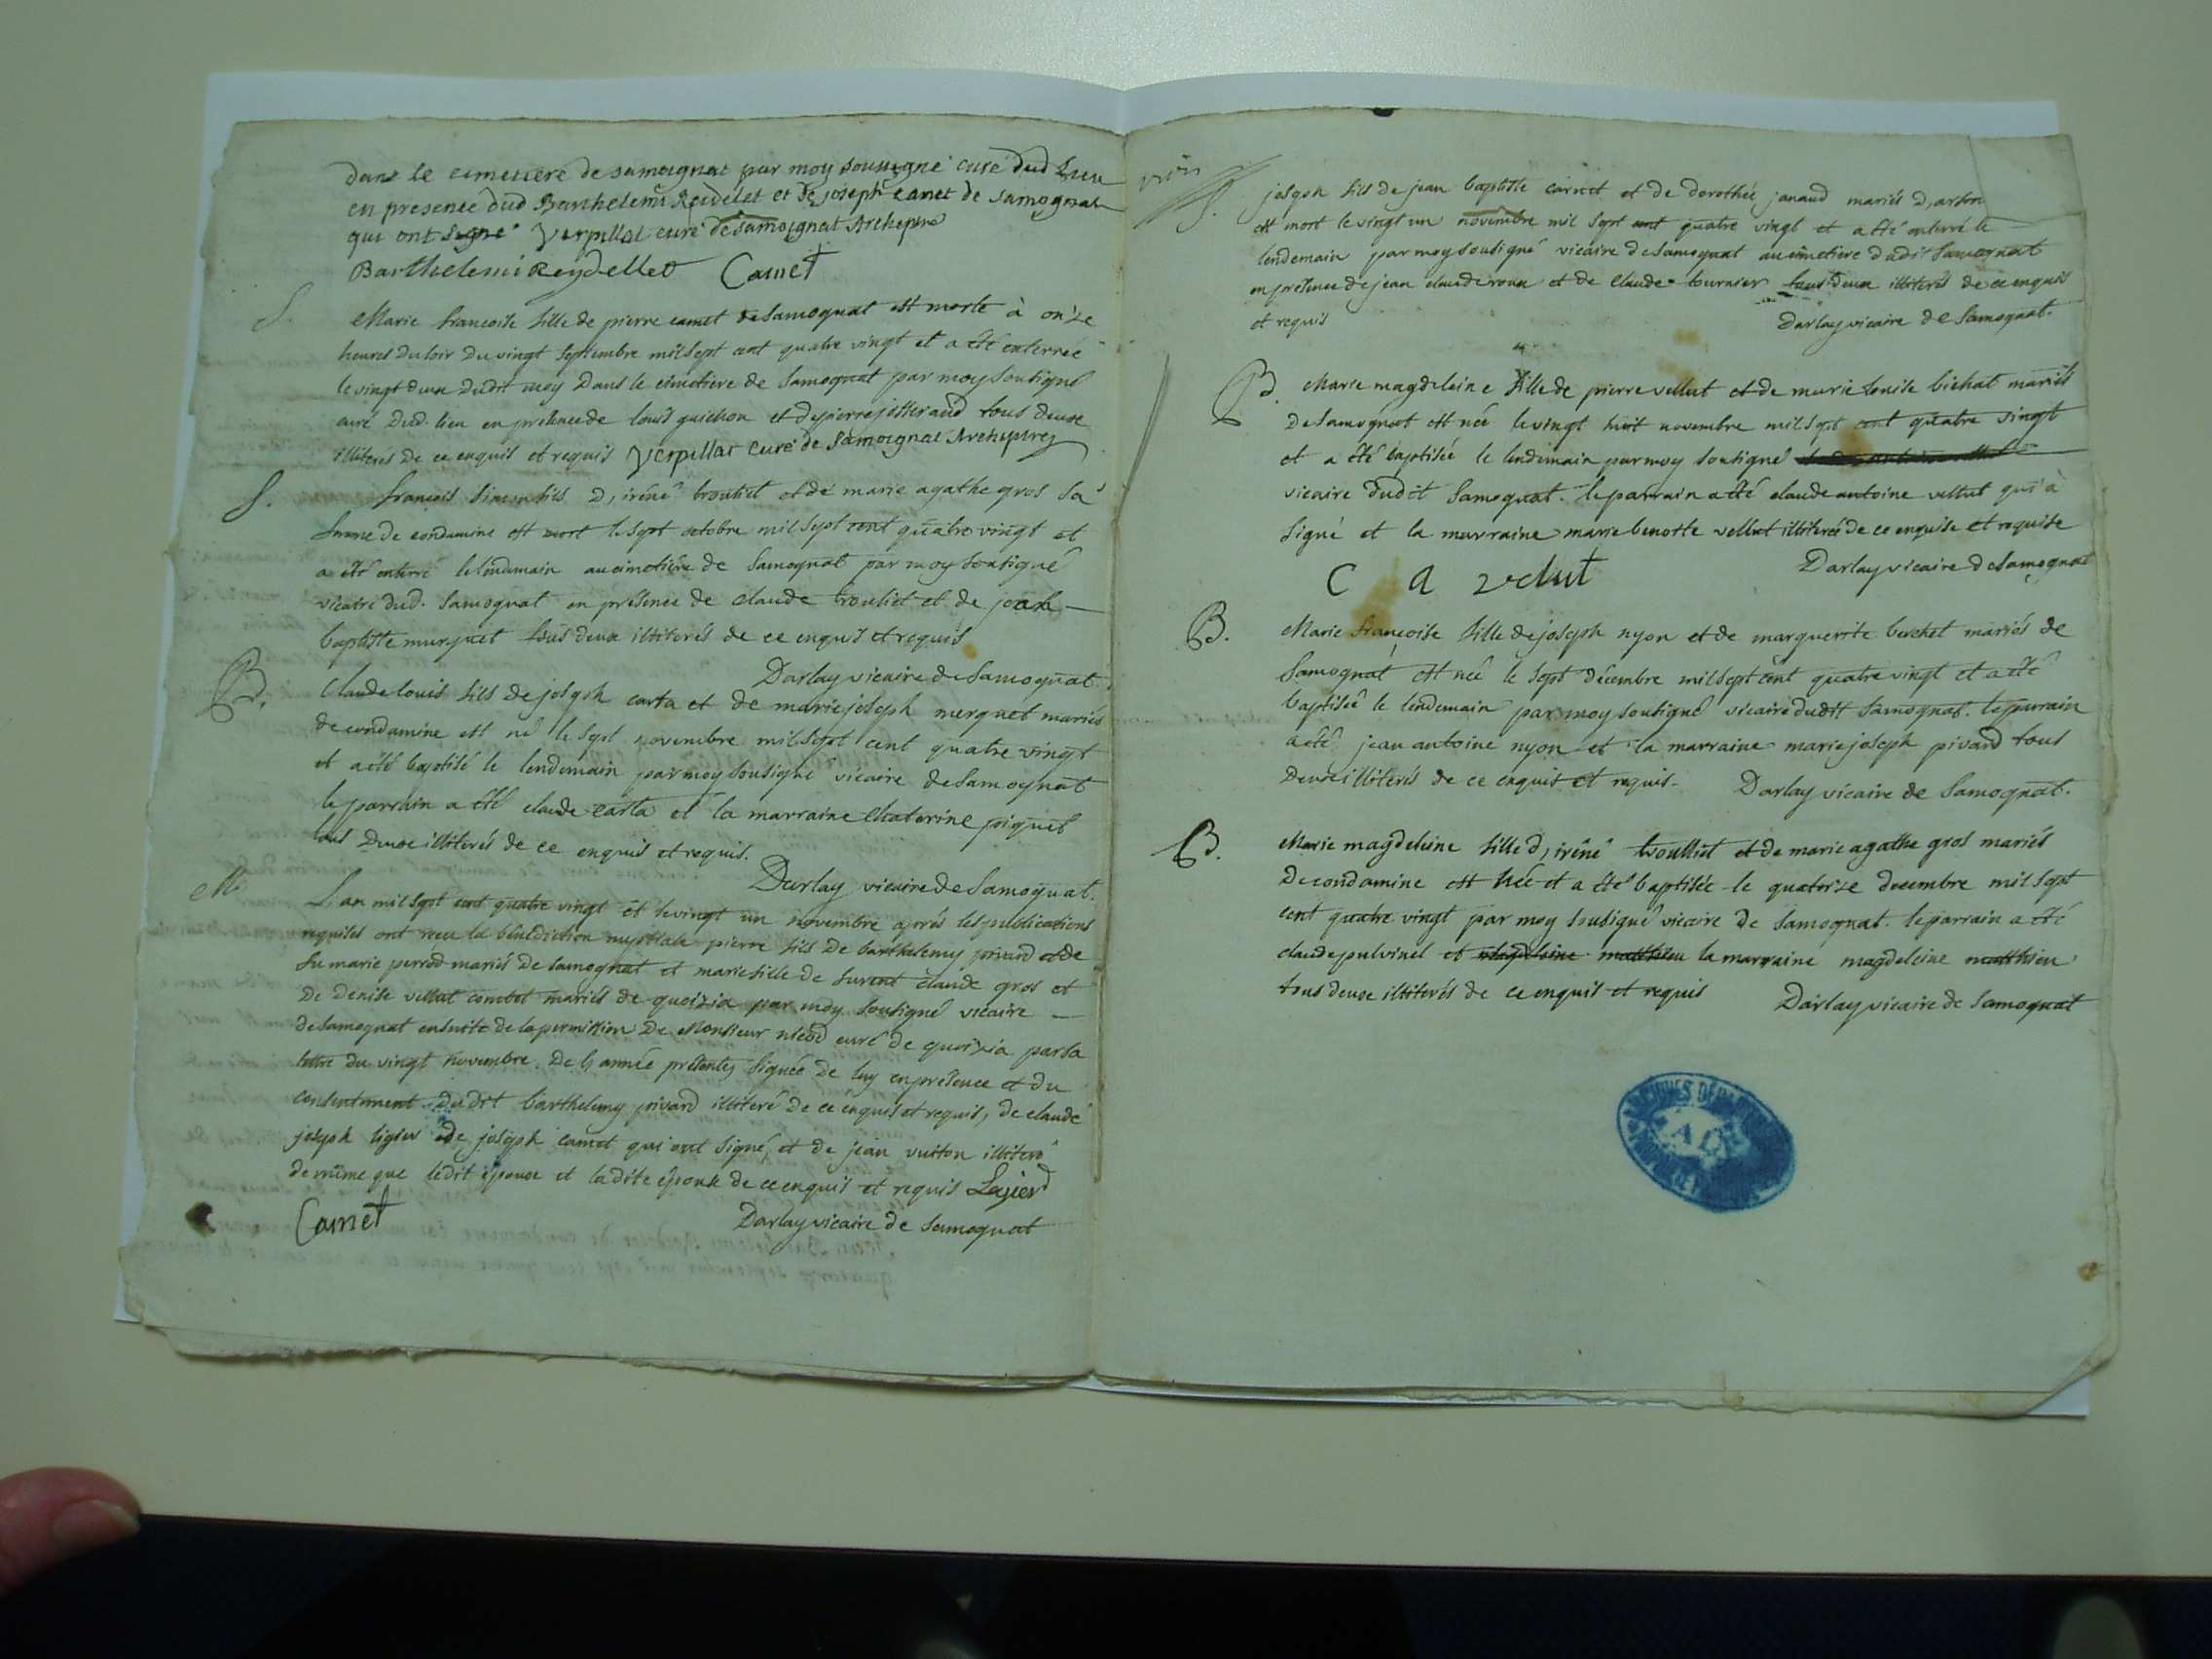 dans le cimetiere de samoignat par moy soussigné curé dud Lieu
en presence dud Barthelemi Reidelet et de joseph camet de samognat
qui ont signé Verpillat curé de samoignat Archiprie
Barthelemi Reydellet Camet
S.
Marie francoise fille de pierre camet de Samognat est morte à onze
heures du soir du vingt septembre mil sept cent quatre vingt et a été enterrée
le vingt deux dudit moy Dans le cimetiere de Samognat par moy soutigné
curé Dud. lieu en présence de louis guichon et de pierre josserand tous deux
illiteres de ce enquis et requis Verpillat curé de Samoignat Archipretre
S.
francois simon fils D, iréné trouliet et de marie agathe gros sa
femme de condamine est mort le sept octobre mil sept cent quatre vingt et
a été enterré le lendemain au cimetière de Samognat par moy soutigné
vicaire dud. Samognat en présence de claude trouliet et de jean
baptiste murquet tous deux illiterés de ce enquis et requis
Darlay vicaire de Samognat
B.
Claude louis fils de joseph carta et de marie joseph merquet mariés
de condamine est né le sept novembre mil sept cent quatre vingt
et a été baptisé le lendemain par moy soutigné vicaire de Samognat
le parrain a été claude carta et la marraine Chaterine piquet
tous deuxe illiterés de ce enquis et requis.
Darlay vicaire de Samognat.
M.
L'an mil sept cent quatre vingt et le vingt un novembre après les publications
requises ont receu la bénédiction nuptiale pierre fils De barthelemy pivard et de
fu marie perrod mariés De samognat et marie fille de furent claude gros et
De Denise vellut combet mariés de quoizia par moy soutigné vicaire
de Samognat ensuite de la permission De Monsieur nicod curé de quoizia par sa
lettre du vingt novembre. De l, année présente, signée de luy en présence et du
consentement Dudit barthelemy pivard illiteré De ce enquis et requis, de claude
joseph ligier de joseph camet qui ont signé, et de jean vuiton illiteré
de même que ledit épouxe et ladite épouse de ce enquis et requis Lagier
Camet Darlay vicaire de Samognat
S.
joseph fils de jean baptiste carret et de dorothée janaud mariés D, arton
est mort le vingt un novembre mil sept cent quatre vingt et a été enterré le
lendemain par moy soutigné vicaire de Samognat au cimetiere dudit Samognat
en présence de jean claude roux et de claude tournier tous deux illiterés de ce enquis
et requis Darlay vicaire de Samognat.
B.
Marie magdeleine fille de pierre vellut et de marie denise bichat mariés
de Samognat est née le vingt huit novembre mil sept cent quatre vingt
et a été baptisée le lendemain par moy soutigné
vicaire dudit Samognat. le parrain a été claude antoine vellut qui à
signé et la marraine marie benoite vellut illiterée de ce enquise et requise
C A velut Darlay vicaire de Samognat
B.
Marie françoise fille de joseph nyon et de marguerite berchet mariés de
Samognat est née le sept décembre mil sept cent quatre vingt et a été
baptisée le lendemain par moy soutigné vicaire dudit Samognat. le parain
a été jean antoine nyon et la marraine marie joseph pivard tous
Deuxe illiterés de ce enquis et requis. Darlay vicaire de Samognat.
B.
Marie magdeleine fille d, iréné trouillet et de marie agathe gros mariés
De condamine est née et a été baptisée le quatorze decembre mil sept
cent quatre vingt par moy soutigné vicaire de Samognat. le parrain a été
claude pulvinel et magdeleine matthieu la marraine magdeleine matthieu
tous deuxe illiterés de ce enquis et requis Darlay vicaire de Samognat